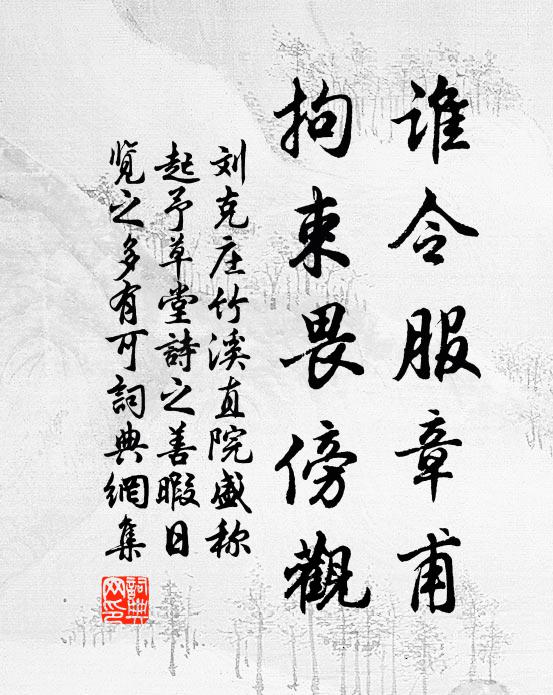 谁令服章甫
拘束畏傍觀
刘克庄竹溪直院盛称
起予草堂詩之善暇日
览之多有可詞典網集
詞典網印